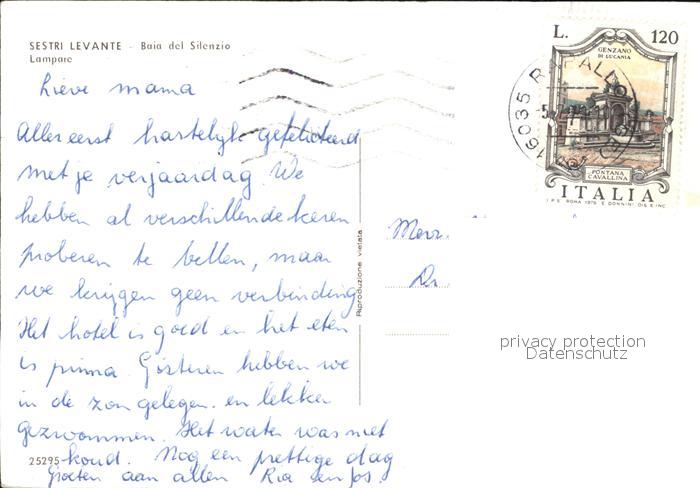 SESTRI LEVANTE - Baia del Silenzio
Lampare
Lieve mama
Allereerst hartelijk gefeliciteerd
met je verjaardag. We
hebben al verschillende keren
proberen te bellen, maar
we krijgen geen verbinding
Het hotel is goed en het eten
is prima. Gisteren hebben we
in de zon gelegen. en lekker
gezwommen. Het water was niet
koud. Nog een prettige dag
Groeten aan allen Ria en Jos.
25295
Riproduzione vietata
L. 120
GENZANO
DI LUCANIA
FONTANA
CAVALLINA
ITALIA
I.P.S. ROMA 1976 E. DONNINI DIS. E INC.
16035 RAPALLO (GE)
Mevr.
privacy protection
Datenschutz